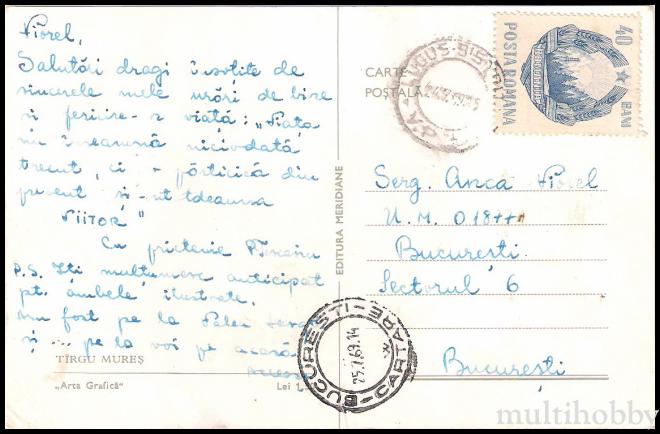 Viorel,
Salutări dragi însoțite de
sincerele mele urări de bine
și fericire - viață: „Viața
nu înseamnă niciodată
trecut, ci o părticică din
prezent și
VIITOR"
Cu prietenie
P.S. Îți mulțumesc anticipat
pt. ambele ilustrate.
Am fost pe la
și ... pe la voi pe acasă
TÎRGU MUREȘ
„Arta Grafică"
Lei 1,
EDITURA MERIDIANE
CARTE
POȘTALĂ
POSTA ROMANA
40
BANI
Serg. Anca Viorel
U.M. 01844
București.
Sectorul 6
București
BUCUREȘTI - CARTARE
25.7.69.14
multihobby